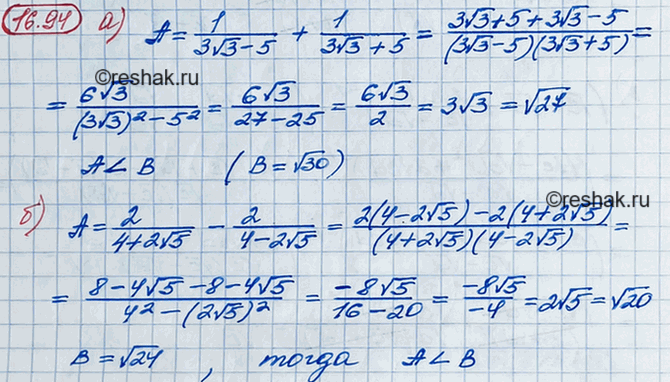 16.94 а) A = 1/(3√3-5) + 1/(3√3+5) = (3√3+5+3√3-5)/((3√3-5)(3√3+5)) =
©reshak.ru
= 6√3/((3√3)²-5²) = 6√3/(27-25) = 6√3/2 = 3√3 = √27
A < B (B = √30)
©reshak.ru
б) A = 2/(4+2√5) - 2/(4-2√5) = (2(4-2√5)-2(4+2√5))/((4+2√5)(4-2√5)) =
= (8-4√5-8-4√5)/(4²-(2√5)²) = -8√5/(16-20) = -8√5/-4 = 2√5 = √20
B = √24, тогда A < B